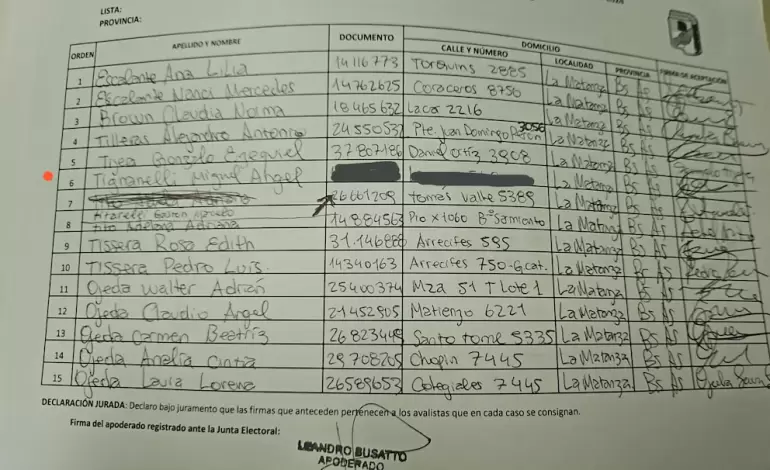 LISTA:
PROVINCIA:
ORDEN APELLIDO Y NOMBRE DOCUMENTO DOMICILIO
CALLE Y NÚMERO LOCALIDAD PROVINCIA FIRMA DE ACEPTACIÓN
1 Escalante Ana Lilia 14116773 Torquins 2885 La Matanza Bs As
2 Escalante Nanci Mercedes 14762625 Coraceros 8750 La Matanza Bs As
3 Brown Claudia Norma 18465632 Lacar 2216 La Matanza Bs As
4 Tilleras Alejandro Antonio 24550532 Pte. Juan Domingo Perón 3056 La Matanza Bs As
5 Gonzalo Ezequiel 37807186 Daniel Ortiz 3908 La Matanza Bs As
6 Tignanelli Miguel Angel La Matanza Bs As
7 26661209 Tomas Valle 5389 La Matanza Bs As
8 Adriana 14884563 Pio x 1060 Bº Sarmiento La Matanza Bs As
9 Tissera Rosa Edith 31.146888 Arrecifes 595 La Matanza Bs As
10 Tissera Pedro Luis. 14340163 Arrecifes 750-G.cat. La Matanza Bs As
11 Ojeda Walter Adrián 25400374 Mza 51 T Lote 1 La Matanza Bs As
12 Ojeda Claudio Angel 21452905 Matienzo 6221 La Matanza Bs As
13 Ojeda Carmen Beatriz 26823449 Santo tome 5335 La Matanza Bs As
14 Ojeda Analia Cintia 29708205 Chopin 7445 La Matanza Bs As
15 Ojeda Laura Lorena 26589653 Colegiales 7445 La Matanza Bs As
DECLARACIÓN JURADA: Declaro bajo juramento que las firmas que anteceden pertenecen a los avalistas que en cada caso se consignan.
Firma del apoderado registrado ante la Junta Electoral:
LEANDRO BUSATTO
APODERADO